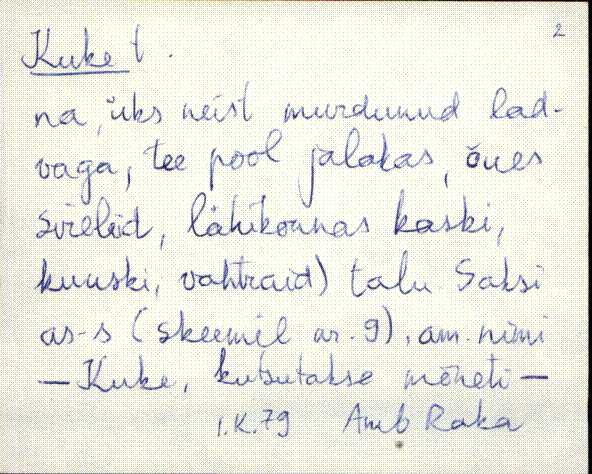 2
Kuke t.
na, üks neist murdunud lad-
vaga, tee pool jalakas, õues
sirelid, lähikonnas kaski,
kuuski, vahtraid) talu Saksi
as-s (skeemil nr. 9), am. nimi
— Kuke, kutsutakse mõneti —
1.X.79 Amb Raka